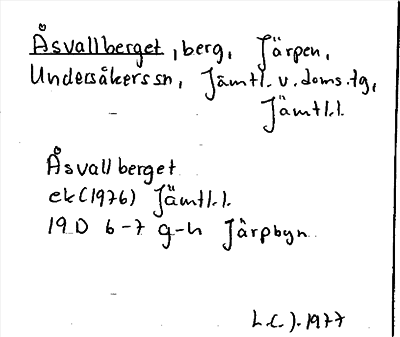 Åsvallberget, berg, Järpen,
Undersåkers sn, Jämtl. v. doms.tg,
Jämtl.l.
Åsvallberget
ek (1976) Jämtl.l.
19D 6-7 g-h Järpbyn
L.C.J. 1977